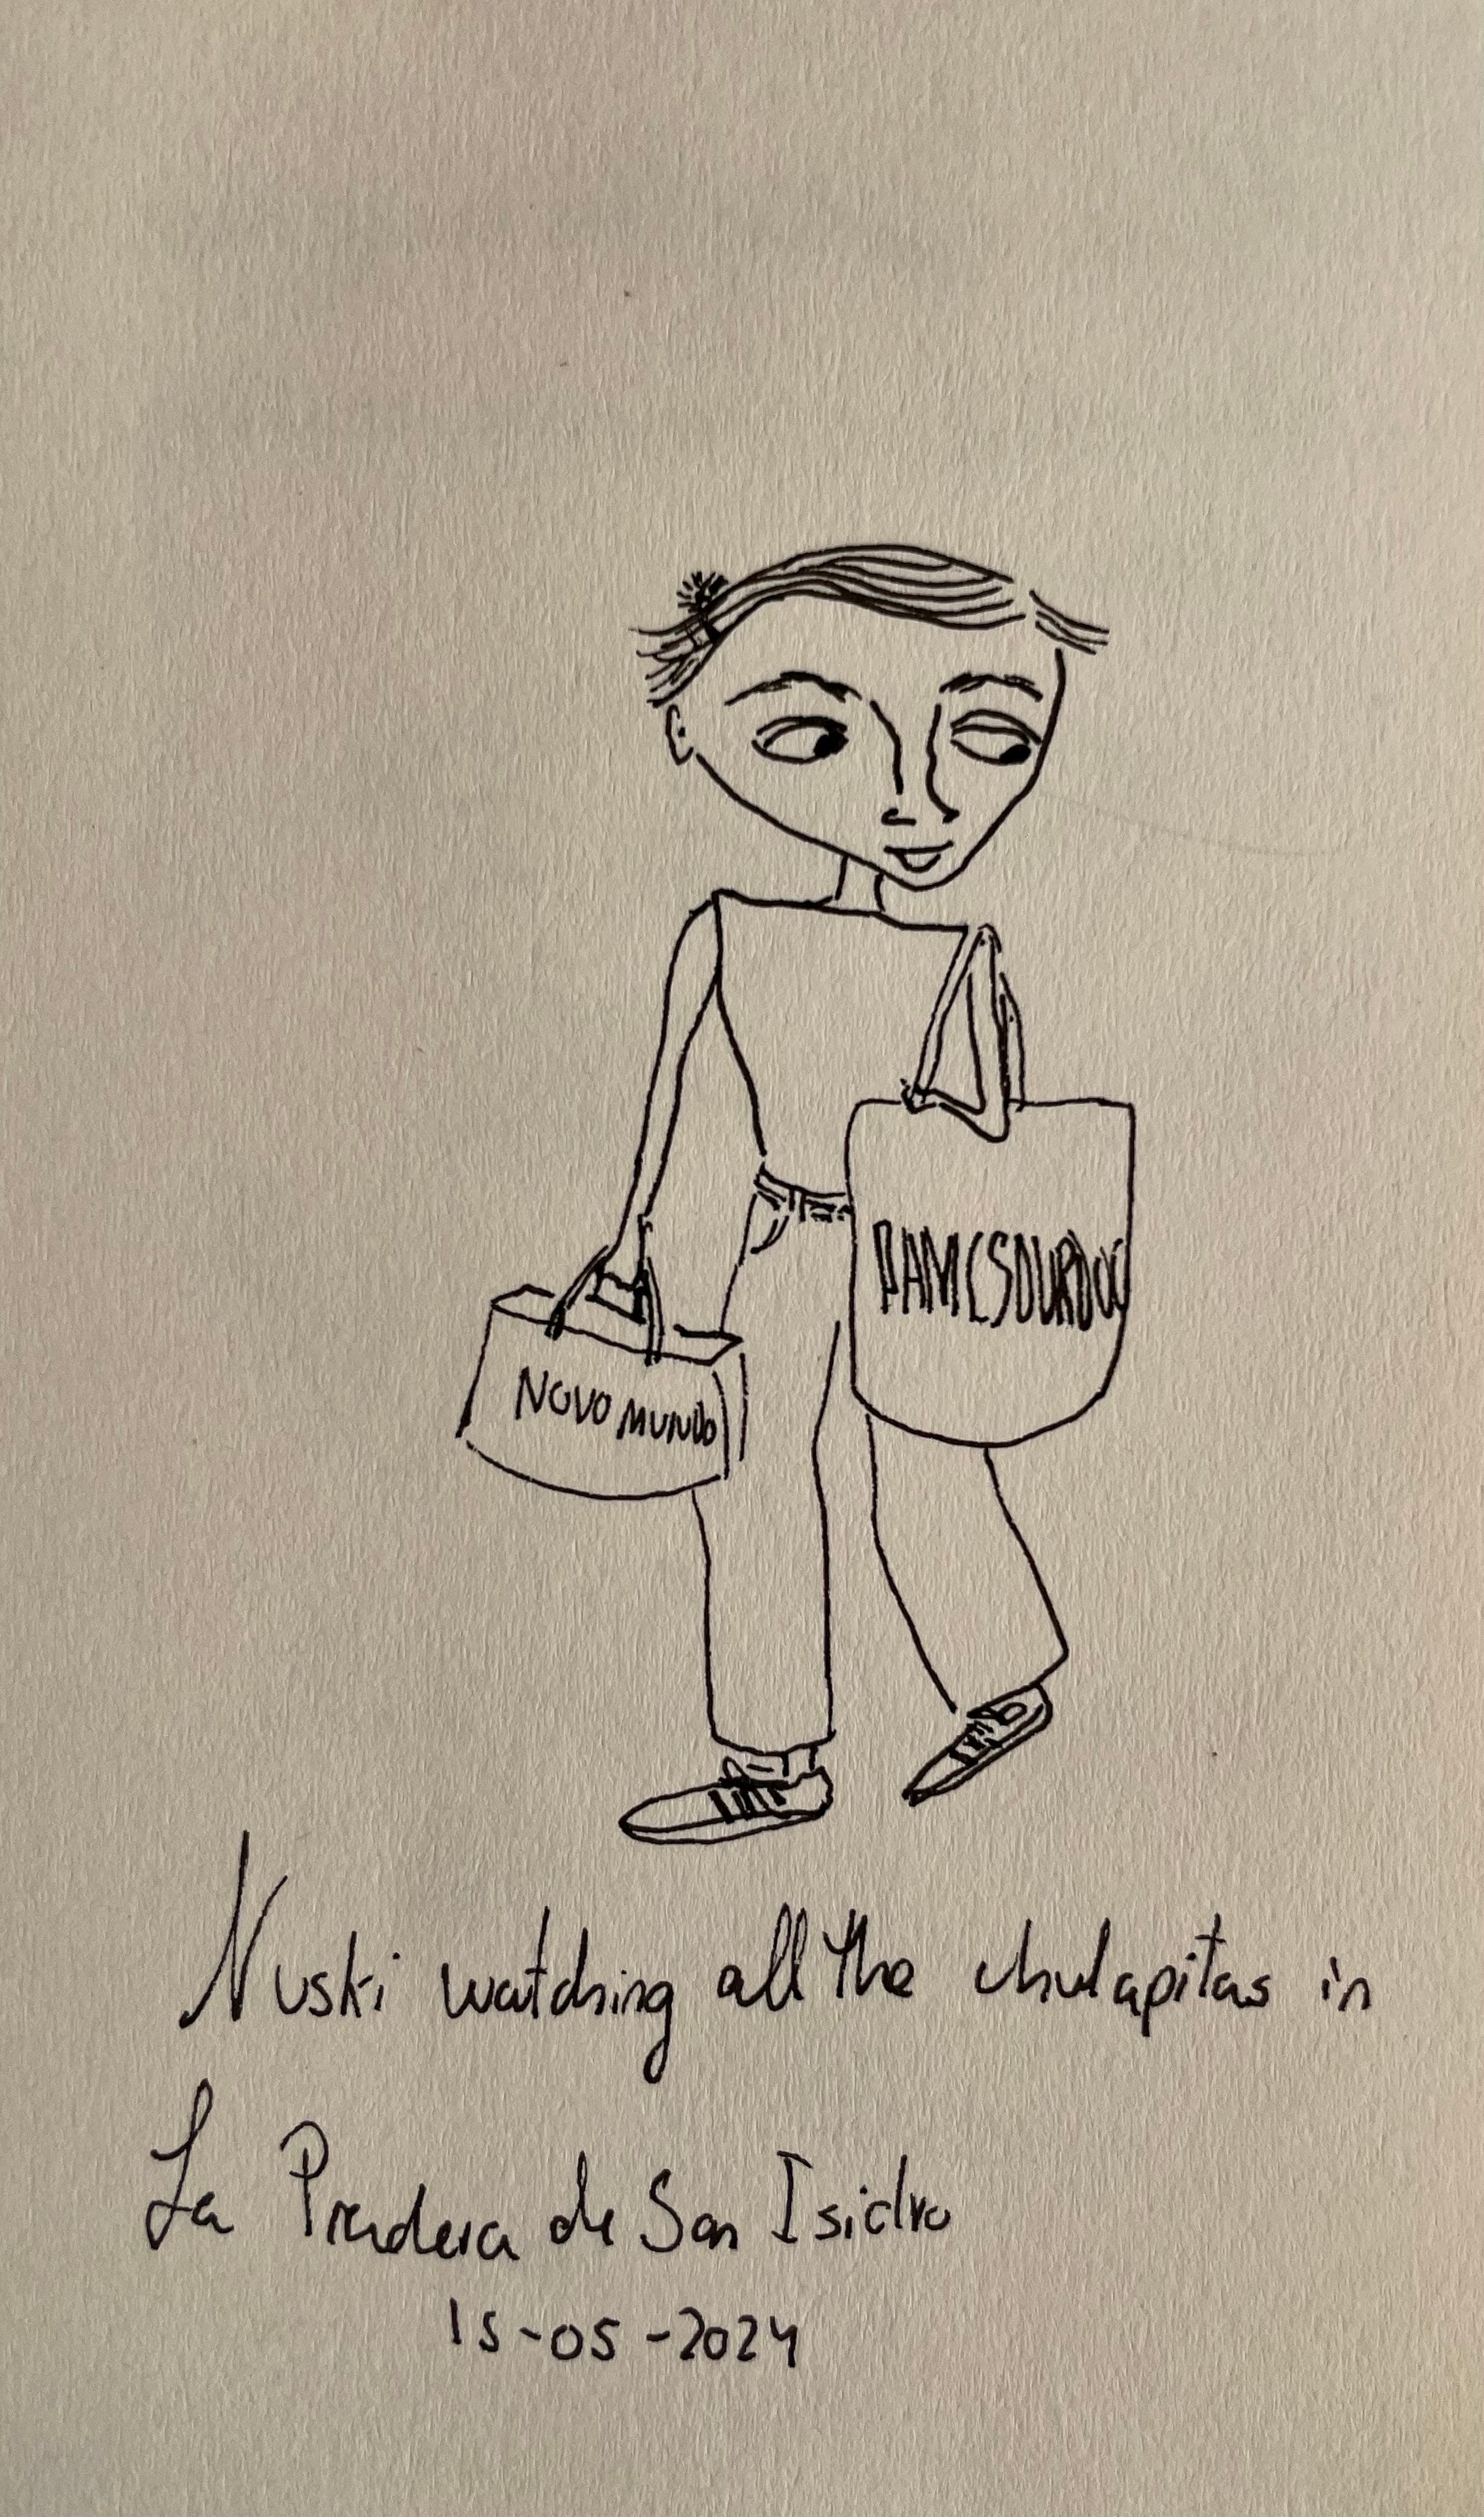 PAM(SOURDOU
NOVO MUNDO
Nuski watching all the chulapitas in
La Pradera de San Isidro
15-05-2024